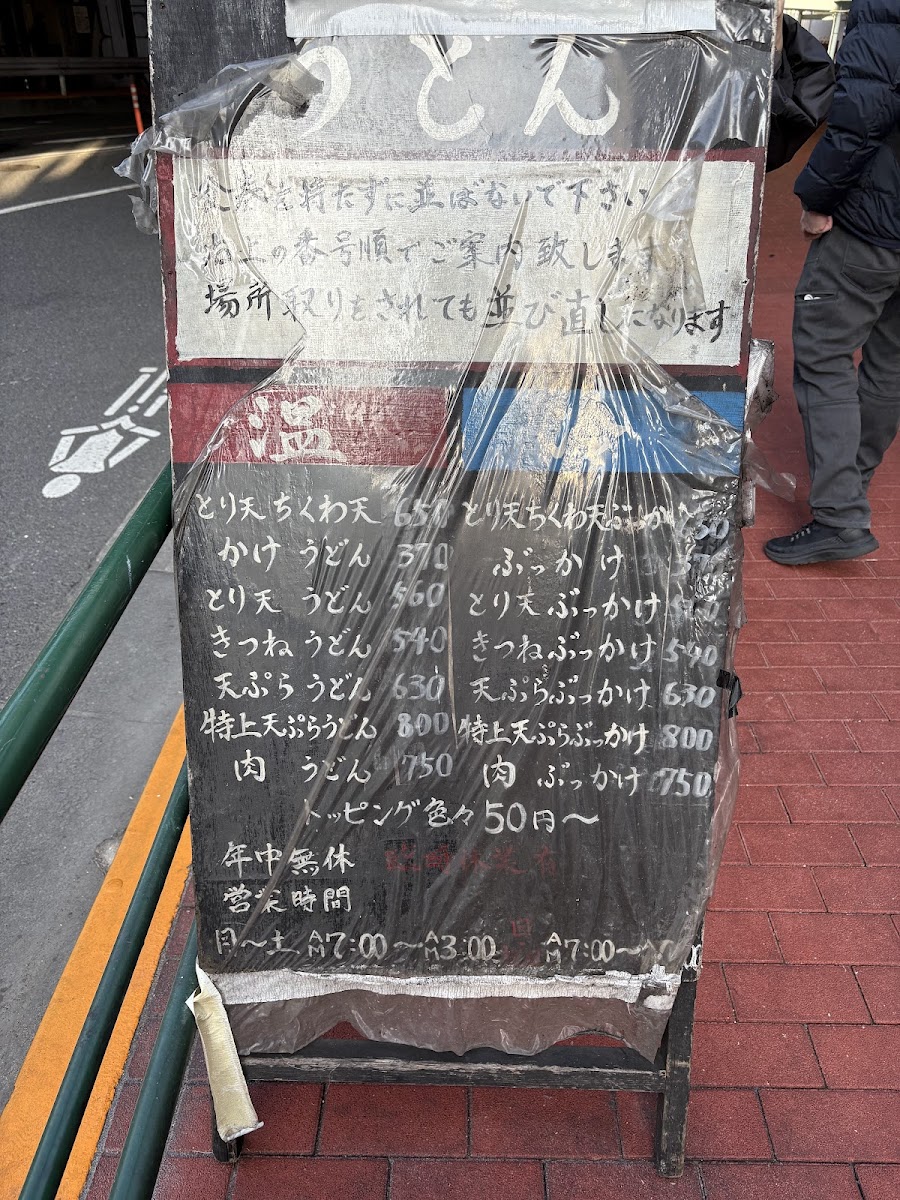 うどん
食券を持たずに並ばないで下さい
の番号順でご案内致します
場所取りをされても並び直しになります
温
とり天ちくわ天 650 とり天ちくわ天ぶっか
かけ うどん 370 ぶっかけ
とり天 うどん 560 とり天ぶっかけ
きつねうどん 540 きつねぶっかけ 540
天ぷらうどん 630 天ぷらぶっかけ 630
特上天ぷらうどん 800 特上天ぷらぶっかけ 800
肉 うどん 750 肉 ぶっかけ 750
トッピング色々50円〜
年中無休
営業時間
月〜土 AM7:00〜AM3:00 日 AM7:00〜